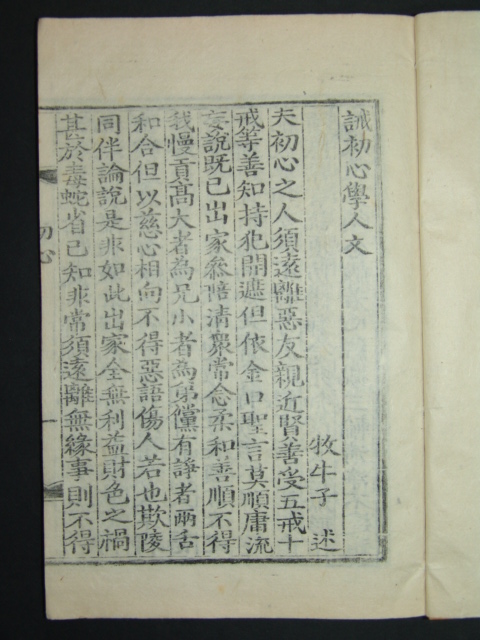 誡初心學人文
牧牛子 述
夫初心之人須遠離惡友親近賢善受五戒十
戒等善知持犯開遮但依金口聖言莫順庸流
妄說既已出家叅陪清衆常念柔和善順不得
我慢貢高大者為兄小者為弟儻有諍者兩舌
和合但以慈心相向不得惡語傷人若也欺陵
同伴論說是非如此出家全無利益財色之禍
甚於毒蛇省己知非常須遠離無緣事則不得
初心